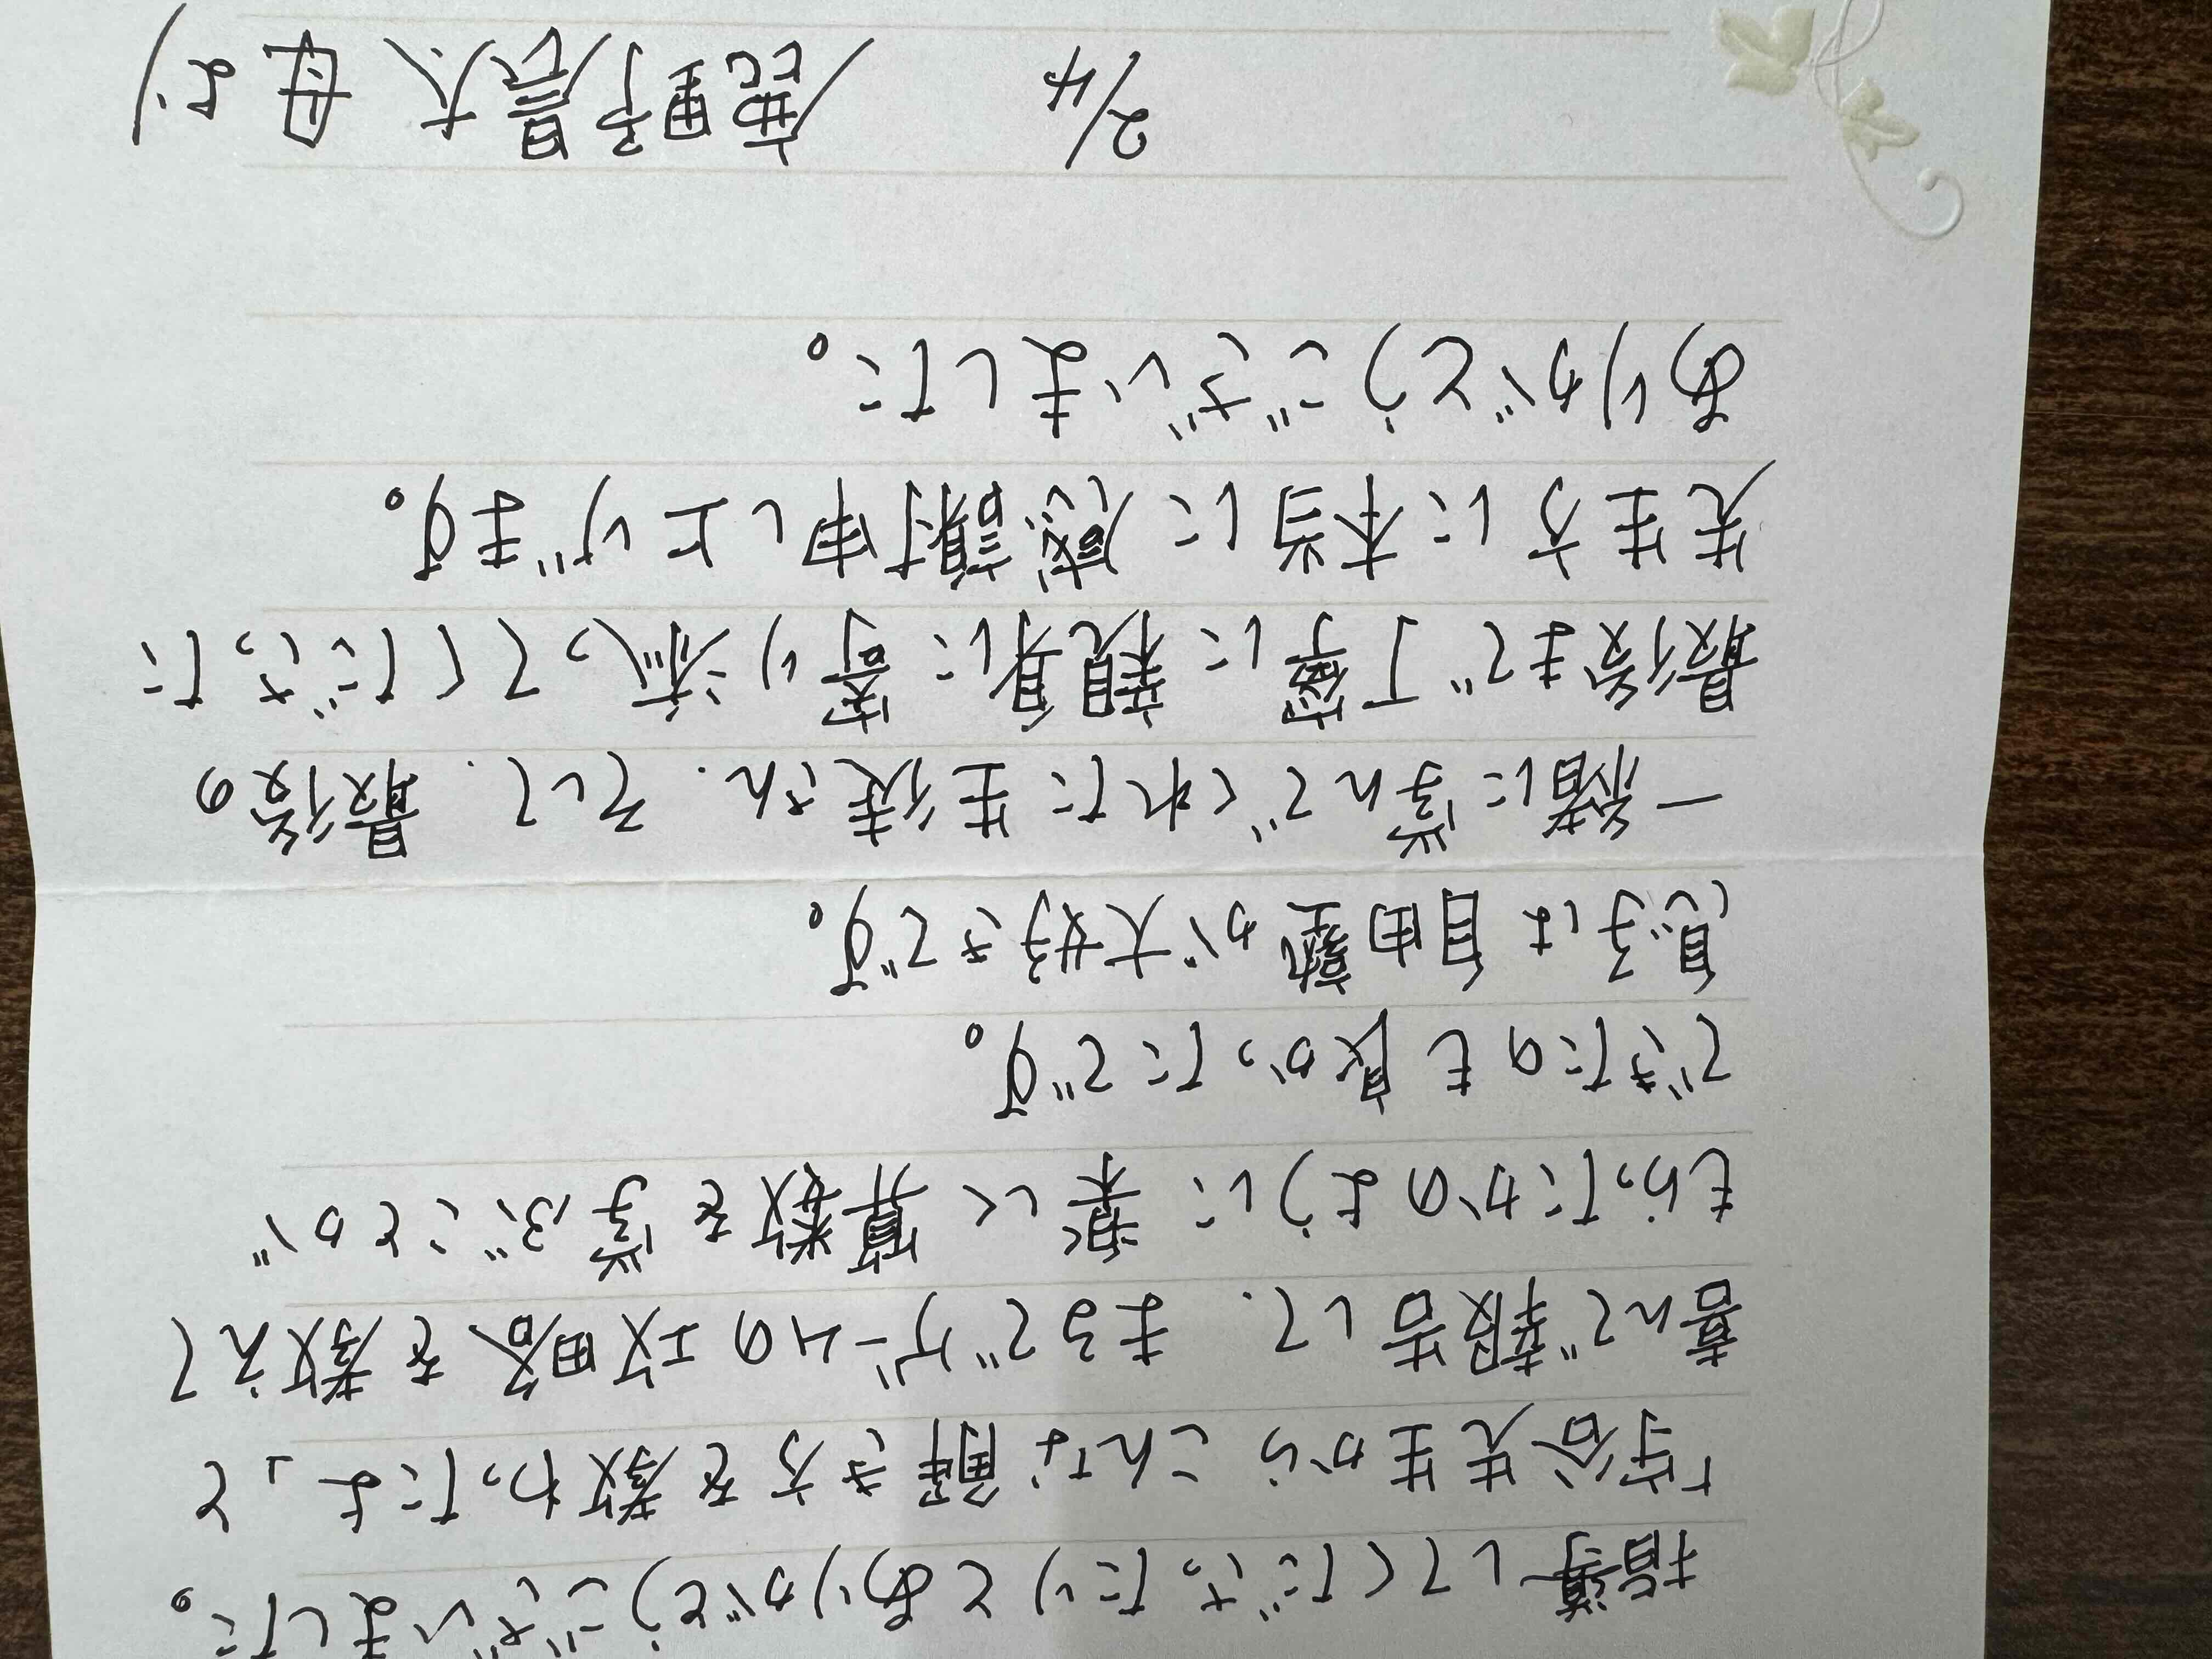 指導してくださったりとありがとうございました。
「守谷先生からこんな解き方を教わったよ」と
喜んで報告して、まるでゲームの攻略を教えて
もらったかのように楽しく算数を学ぶことが
できたのも良かったです。
息子は自由塾が大好きです。
一緒に学んでくれた生徒さん、そして、最後の
最後まで丁寧に親身に寄り添ってくださった
先生方に本当に感謝申し上げます。
ありがとうございました。
2/4 鹿野晨太 母より